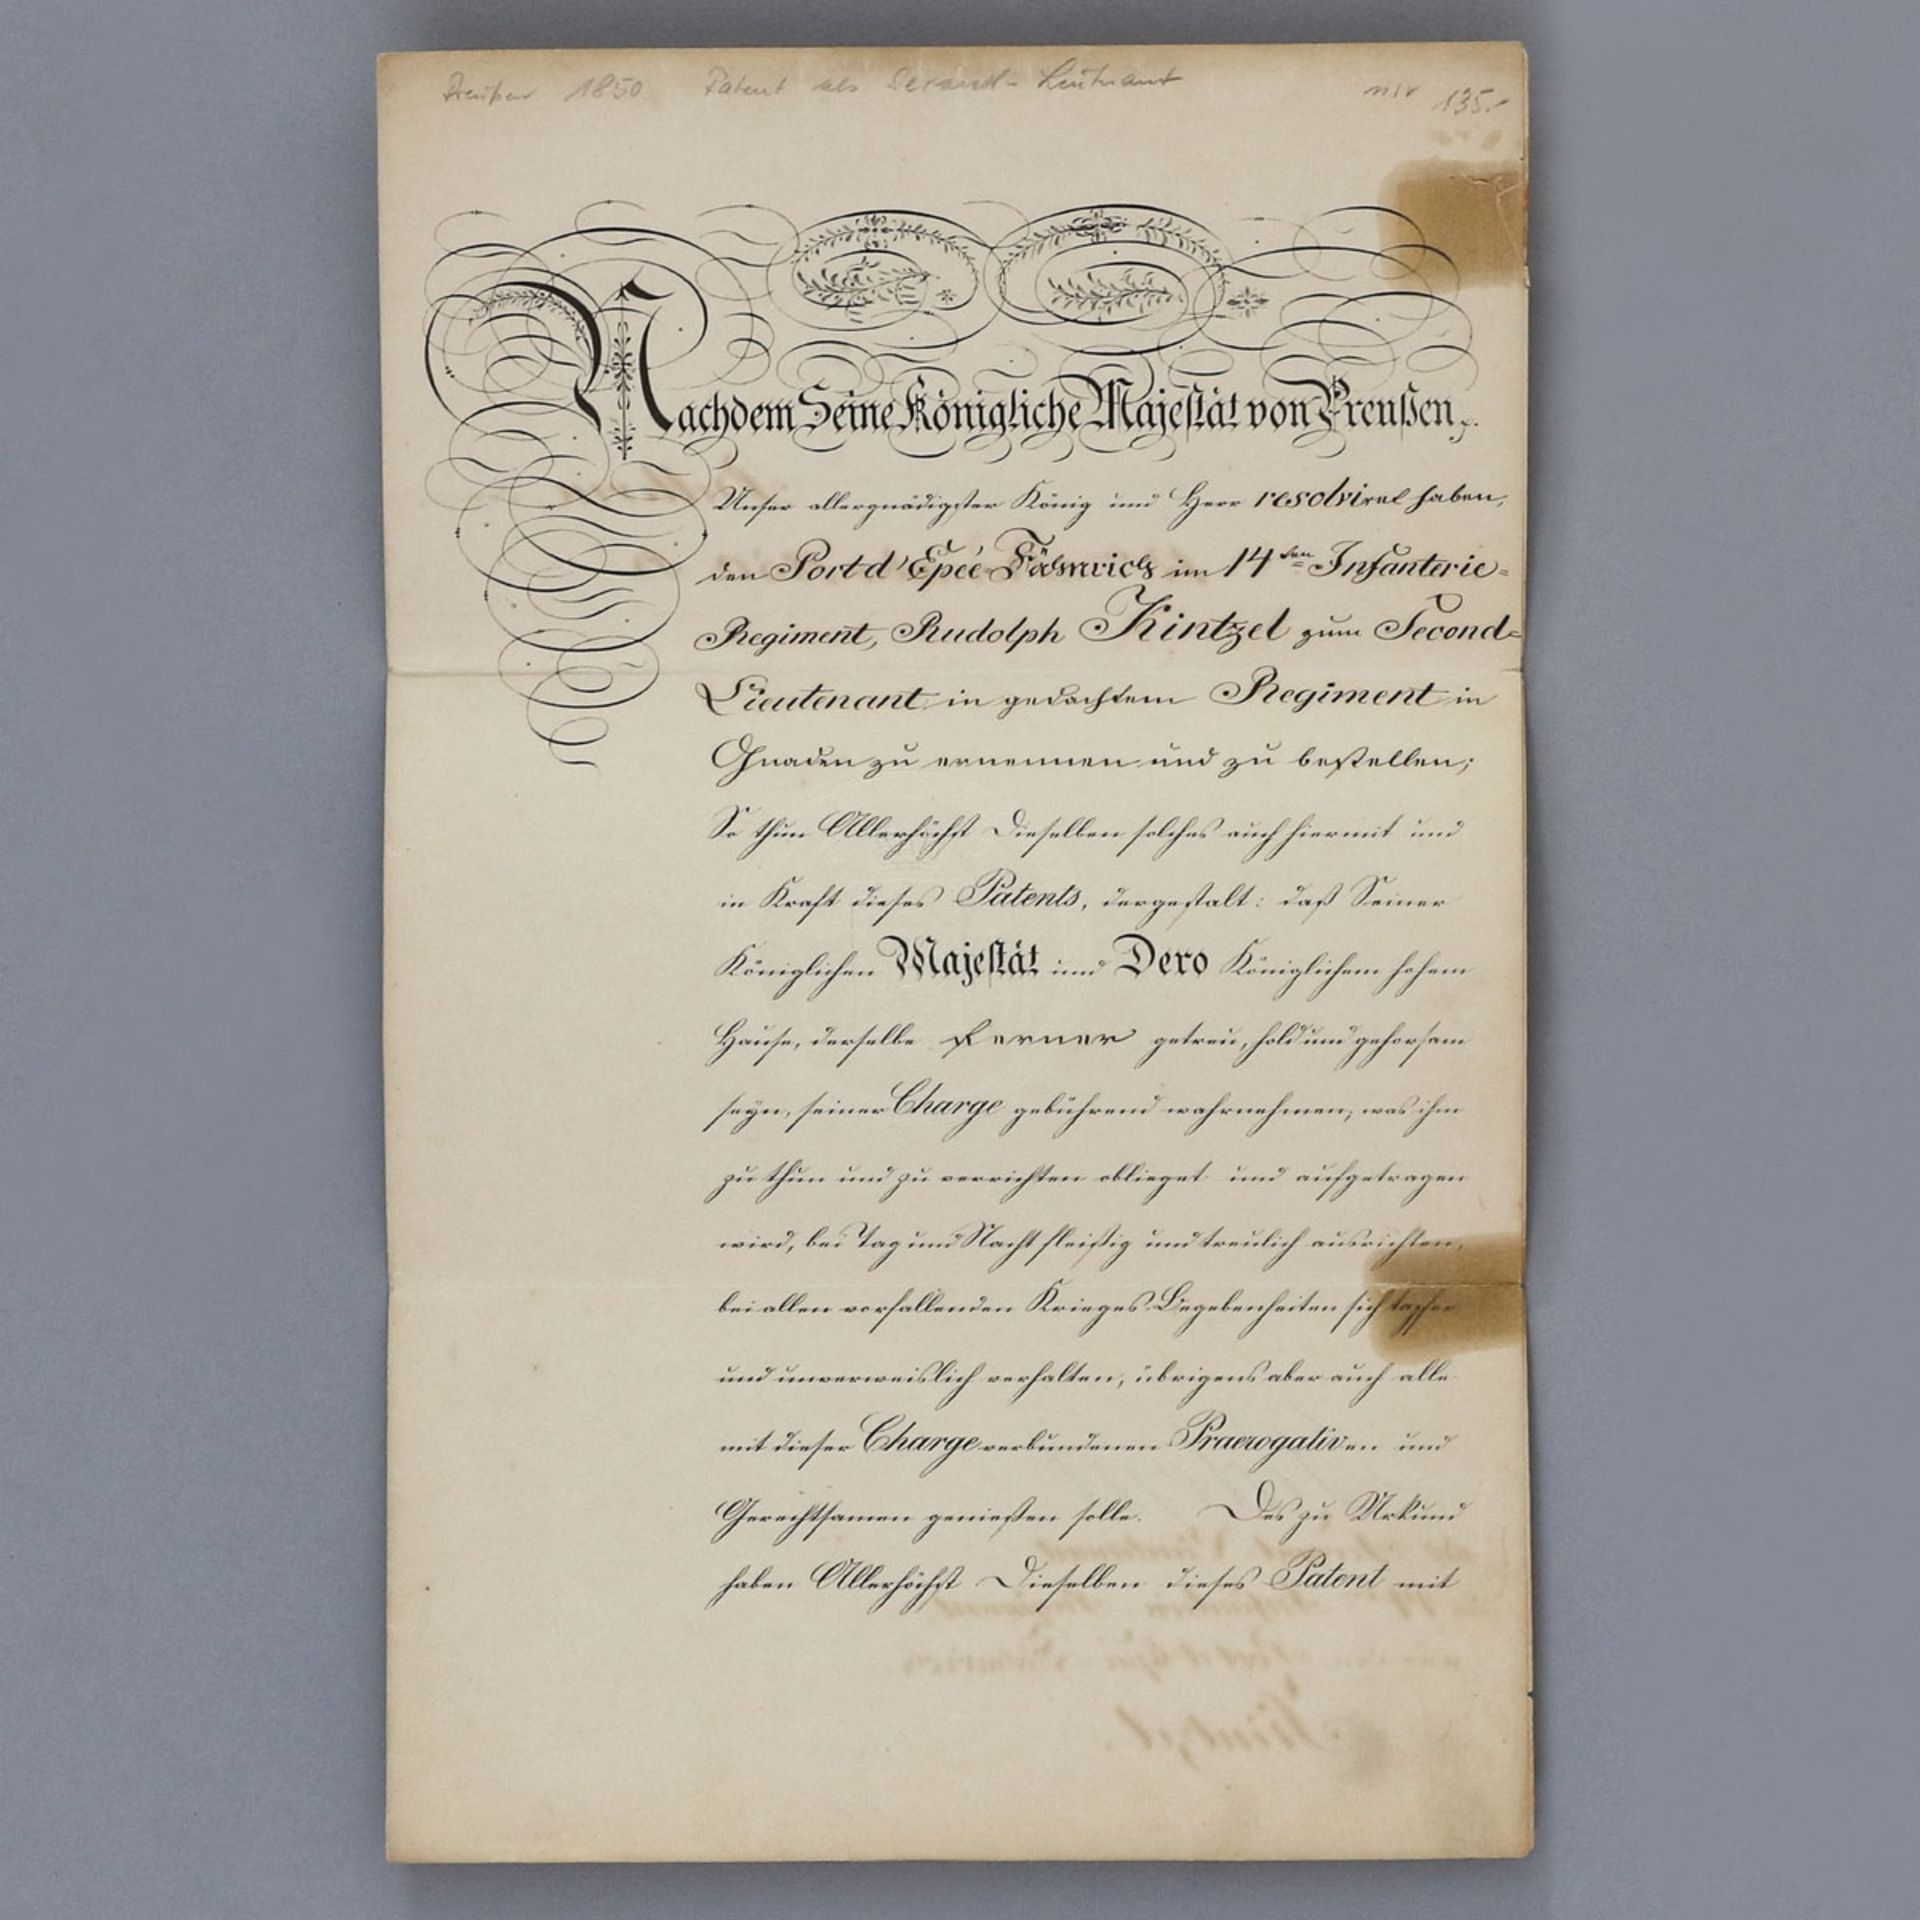 Preußen 1850 Patent als Second-Leutnant 135.-
Nachdem Seine Königliche Majestät von Preußen
Unser allergnädigster König und Herr resolviret haben,
den Port d'Epeé-Fähnrich im 14ten Infanterie-
Regiment, Rudolph Kintzel zum Second-
Lieutenant in gedachtem Regiment in
Gnaden zu ernennen und zu bestellen;
So thun Allerhöchst Dieselben solches auch hiermit und
in Kraft dieses Patents, dergestalt: daß Seiner
Königlichen Majestät und Dero Königlichem hohem
Hause, derselbe ferner getreu, hold und gehorsam
seyn, seiner Charge gebührend wahrnehmen, was ihm
zu thun und zu verrichten oblieget und aufgetragen
wird, bei Tag und Nacht fleißig und treulich ausrichten,
bei allen vorfallenden Krieges-Begebenheiten sich tapfer
und unverweislich verhalten, übrigens aber auch alle
mit dieser Charge verbundenen Praerogativen und
Gerechtsamen genießen solle. Des zu Urkund
haben Allerhöchst Dieselben dieses Patent mit